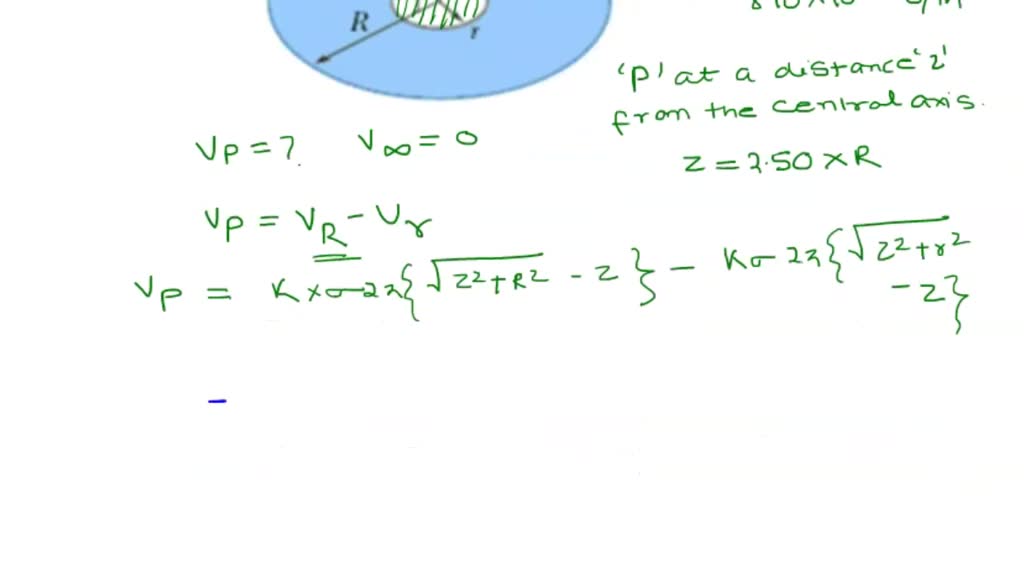 R
r
'P' at a distance 'z'
from the central axis.
VP = ? V∞ = 0
z = 2.50 × R
VP = VR - Vr
VP = K×σ2π{√z²+R² - z} - Kσ2π{√z²+r²
- z}